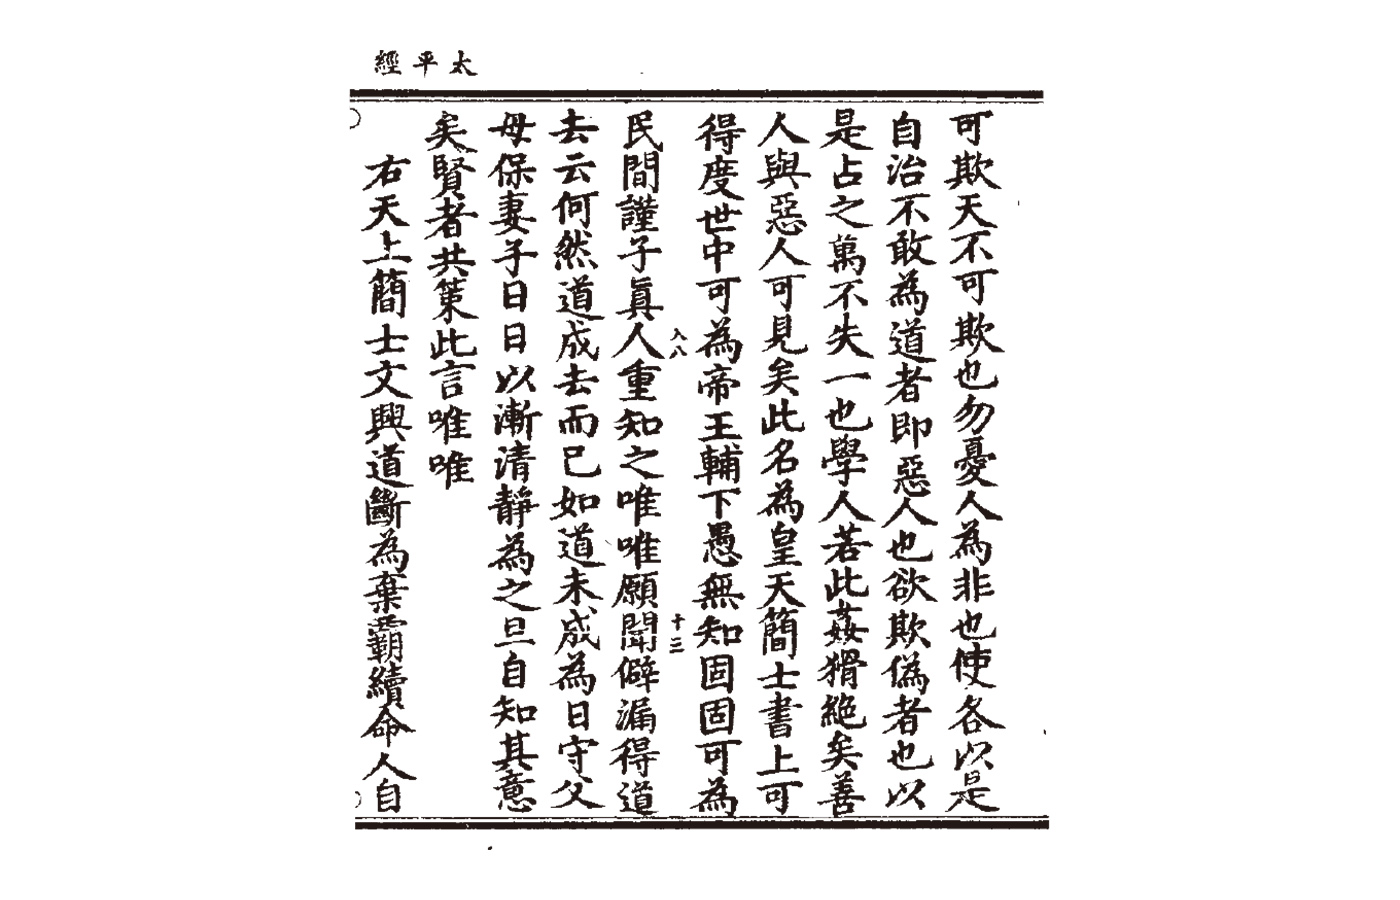 太平經
可欺天不可欺也勿憂人為非也使各以是
自治不敢為道者即惡人也欲欺偽者也以
是占之萬不失一也學人若此姦猾絶矣善
人與惡人可見矣此名為皇天簡士書上可
得度世中可為帝王輔下愚無知固固可為
入八 十三
民間謹子真人重知之唯唯願聞僻漏得道
去云何然道成去而已如道未成為日守父
母保妻子日日以漸清靜為之旦自知其意
矣賢者共策此言唯唯
右天上簡士文興道斷為棄霸續命人自